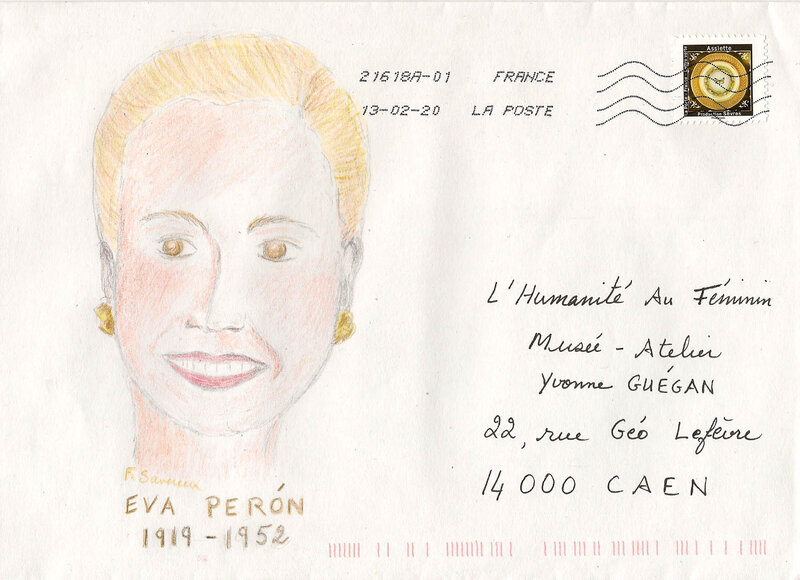 21618A-01 FRANCE
13-02-20 LA POSTE
Assiette
Production Sèvres
L'Humanité Au Féminin
Musée - Atelier
Yvonne GUÉGAN
22, rue Géo Lefèvre
14000 CAEN
EVA PERÓN
1919 - 1952